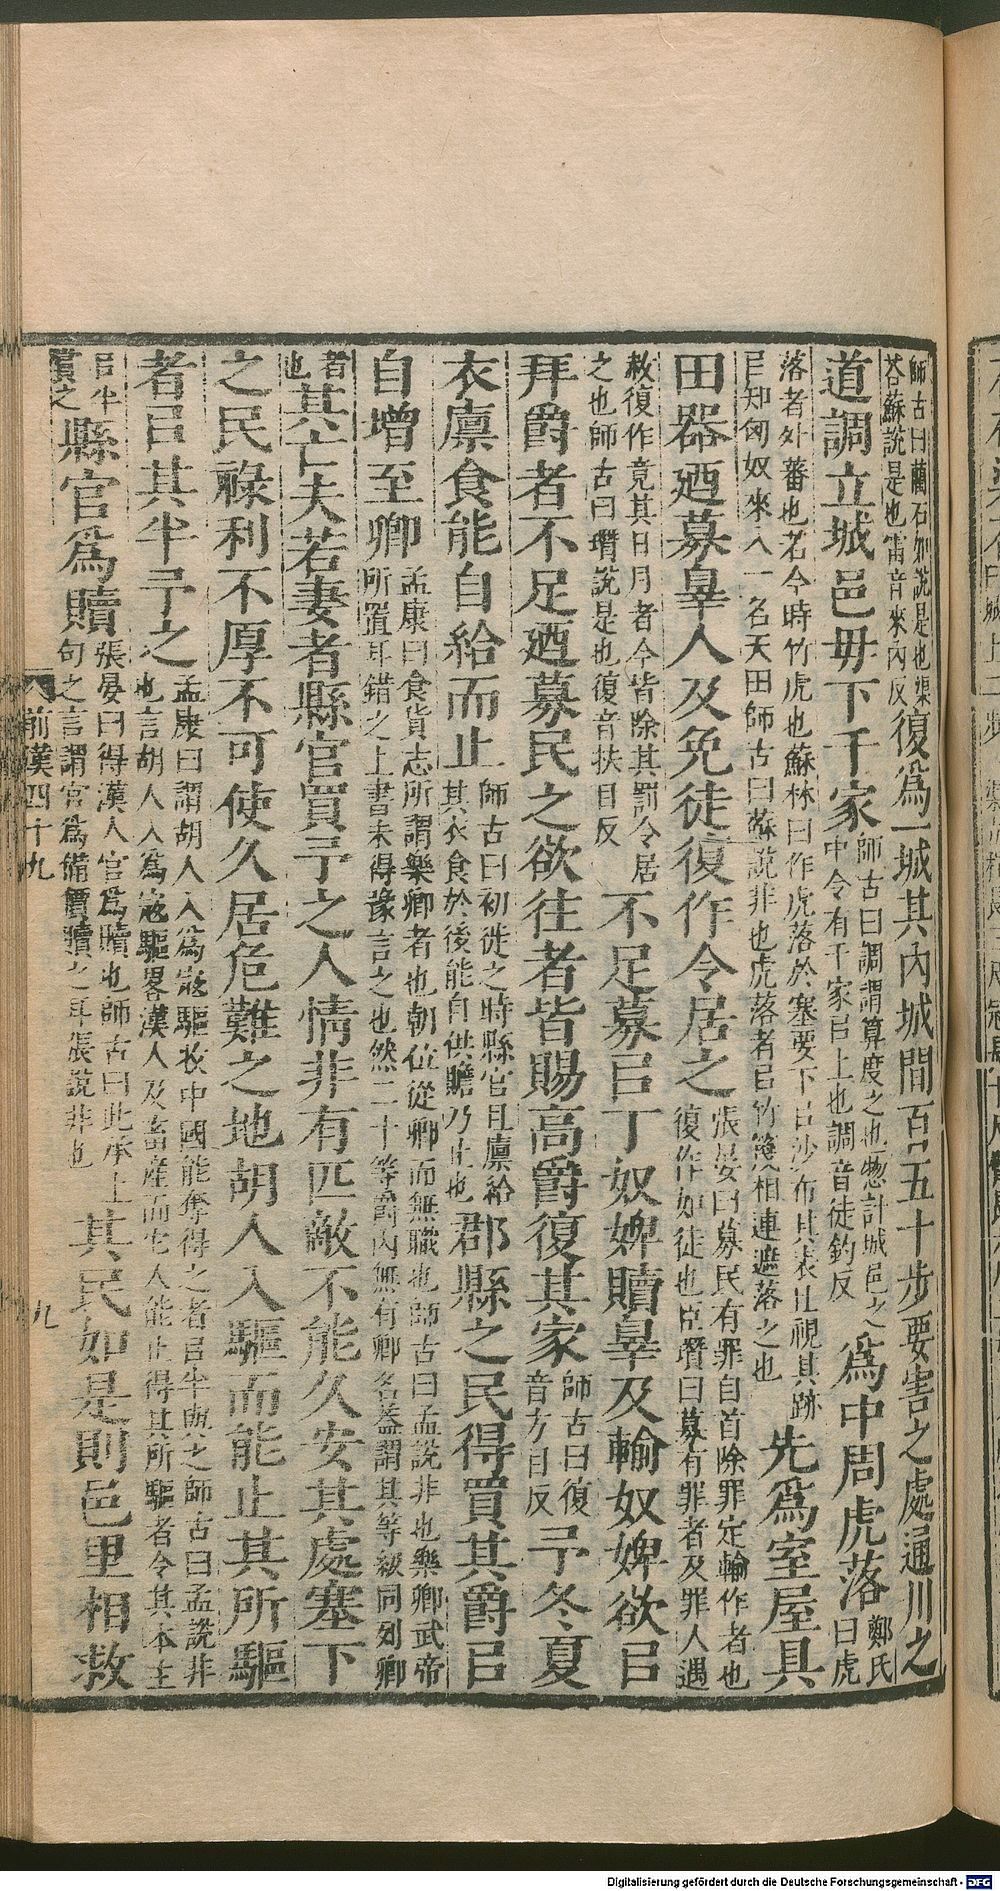 師古曰藺石如說是也渠荅蘇說是也雷音來內反復爲一城其內城間百五十步要害之處通川之
道調立城邑毋下千家師古曰調謂算度之也惣計城邑之中令有千家㠯上也調音徒釣反爲中周虎落鄭氏曰虎
落者外蕃也若今時竹虎也蘇林曰作虎落於塞要下㠯沙布其表旦視其跡㠯知匈奴來入一名天田師古曰蘇說非也虎落者㠯竹篾相連遮落之也先爲室屋具
田器廼募辠人及免徒復作令居之張晏曰募民有罪自首除罪定輸作者也復作如徒也臣瓚曰募有罪者及罪人遇
赦復作竟其日月者今皆除其罰令居之也師古曰瓚說是也復音扶目反不足募㠯丁奴婢贖辠及輸奴婢欲㠯
拜爵者不足廼募民之欲往者皆賜高爵復其家師古曰復音方目反予冬夏
衣廩食能自給而止師古曰初徙之時縣官且廩給其衣食於後能自供贍乃止也郡縣之民得買其爵㠯
自增至卿孟康曰食貨志所謂樂卿者也朝位從卿而無職也師古曰孟說非也樂卿武帝所置耳錯之上書未得豫言之也然二十等爵內無有卿名蓋謂其等級同列卿
者也其亡夫若妻者縣官買予之人情非有匹敵不能久安其處塞下
之民祿利不厚不可使久居危難之地胡人入驅而能止其所驅
者㠯其半予之孟康曰謂胡人入爲寇驅收中國能奪得之者㠯半與之師古曰孟說非也言胡人入爲寇驅畧漢人及畜產而它人能止得其所驅者令其本主
㠯半賞之縣官爲贖張晏曰得漢人官爲贖也師古曰此承上句之言謂官爲備價贖之耳張說非也其民如是則邑里相救
前漢四十九
九
Digitalisierung gefördert durch die Deutsche Forschungsgemeinschaft - DFG